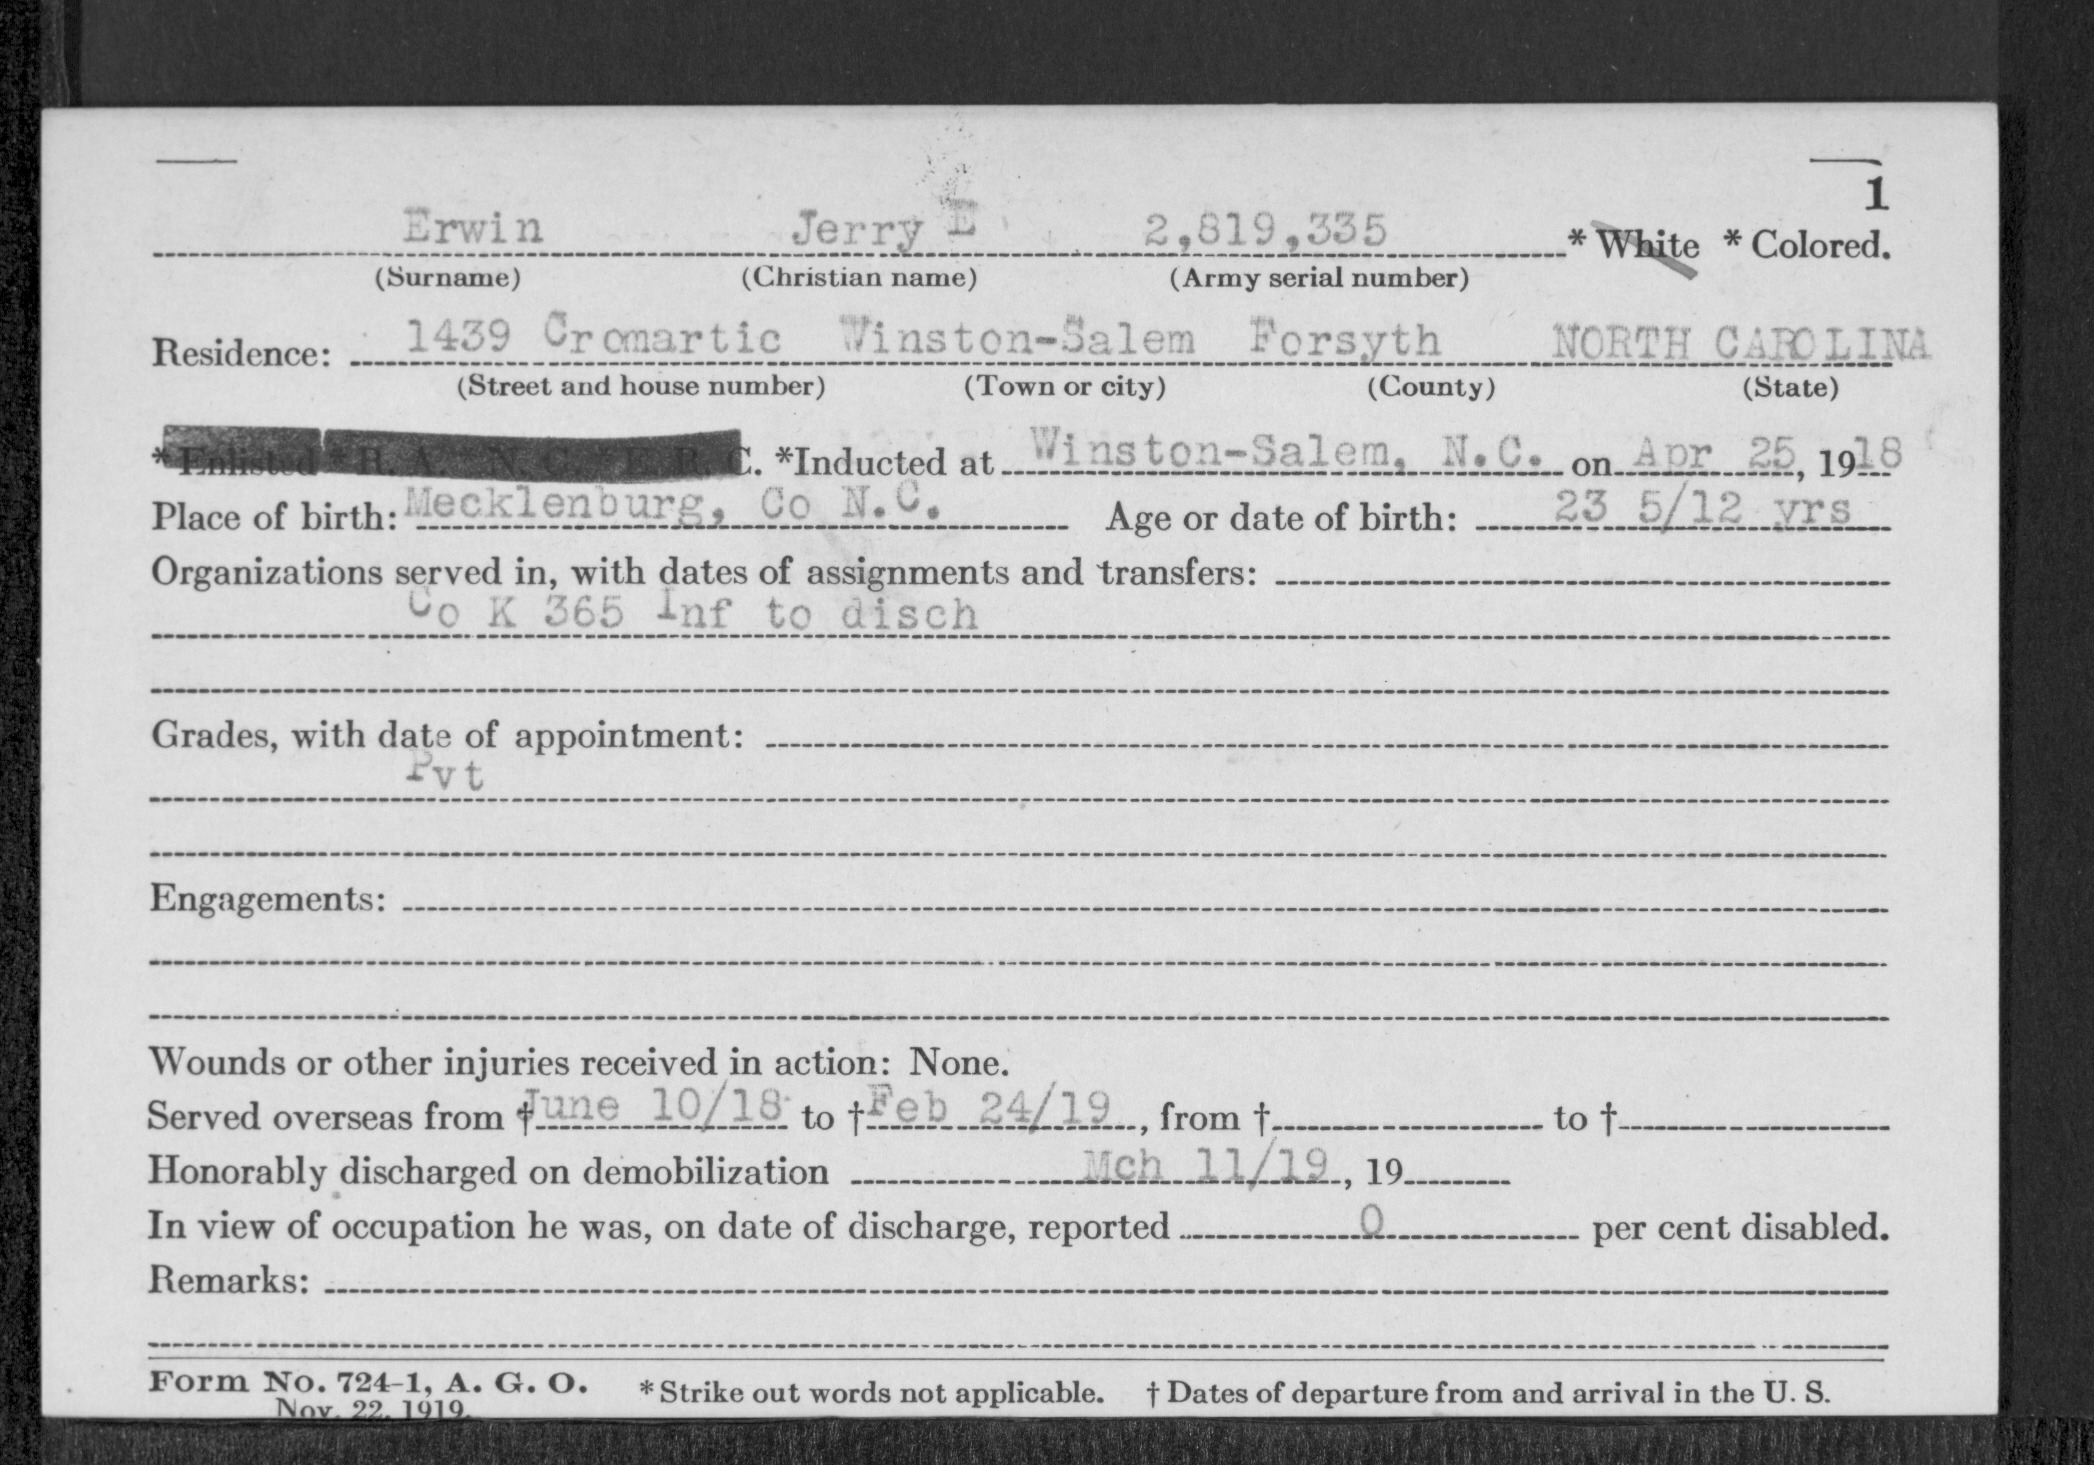 1
Erwin Jerry E 2,819,335 * White * Colored.
(Surname) (Christian name) (Army serial number)
Residence: 1439 Cromartic Winston-Salem Forsyth NORTH CAROLINA
(Street and house number) (Town or city) (County) (State)
* Enlisted * R. A. * N. G. * E. R. C. *Inducted at Winston-Salem, N.C. on Apr 25, 1918
Place of birth: Mecklenburg, Co N.C. Age or date of birth: 23 5/12 yrs
Organizations served in, with dates of assignments and transfers:
Co K 365 Inf to disch
Grades, with date of appointment:
Pvt
Engagements:
Wounds or other injuries received in action: None.
Served overseas from † June 10/18 to † Feb 24/19, from † to †
Honorably discharged on demobilization Mch 11/19, 19
In view of occupation he was, on date of discharge, reported 0 per cent disabled.
Remarks:
Form No. 724-1, A. G. O. * Strike out words not applicable. † Dates of departure from and arrival in the U. S.
Nov. 22, 1919.